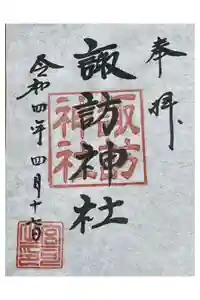 奉拝
諏訪神社
諏訪
神社
令和四年四月十六日